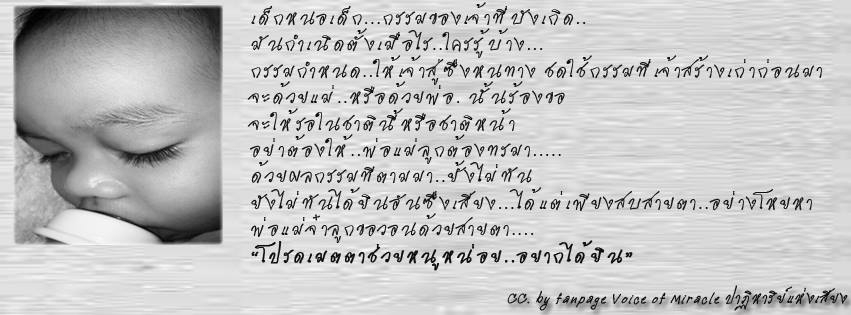 เด็กหนอเด็ก...กรรมของเจ้าที่บังเกิด..
มันกำเนิดตั้งเมื่อไร..ใครรู้บ้าง...
กรรมกำหนด..ให้เจ้าสู้ซึ่งหนทาง ชดใช้กรรมที่เจ้าสร้างเก่าก่อนมา
จะด้วยแม่..หรือด้วยพ่อ. นั้นร้องขอ
จะให้รอในชาตินี้หรือชาติหน้า
อย่าต้องให้..พ่อแม่ลูกต้องทรมา.....
ด้วยผลกรรมที่ตามมา..ยังไม่ทัน
ยังไม่ทันได้ยินอันซึ่งเสียง...ได้แต่เพียงสบสายตา..อย่างโหยหา
พ่อแม่จ๋าลูกขอวอนด้วยสายตา....
"โปรดเมตตาช่วยหนูหน่อย..อยากได้ยิน"
CC. by fanpage Voice of Miracle ปาฏิหาริย์แห่งเสียง